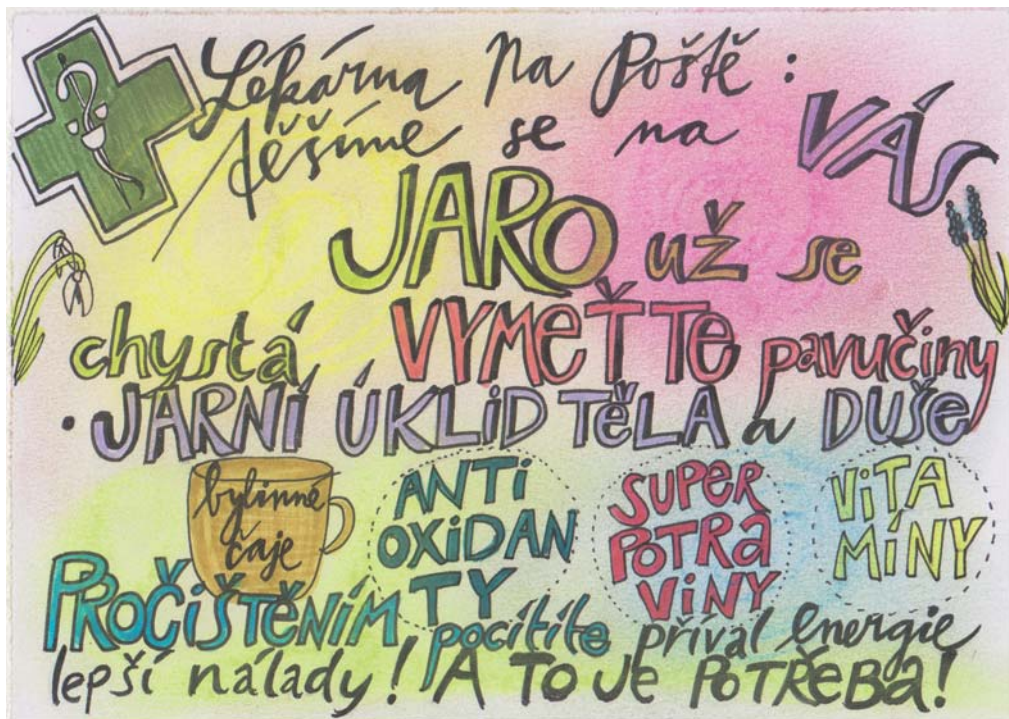 Lékárna Na Poště :
těšíme se na VÁS
JARO už se
chystá VYMEŤTE pavučiny
• JARNÍ ÚKLID TĚLA a DUŠE
bylinné
čaje
ANTI
OXIDAN
TY
SUPER
POTRA
VINY
VITA
MÍNY
PROČIŠTĚNÍM pocítíte příval energie
lepší nálady! A TO JE POTŘEBA!